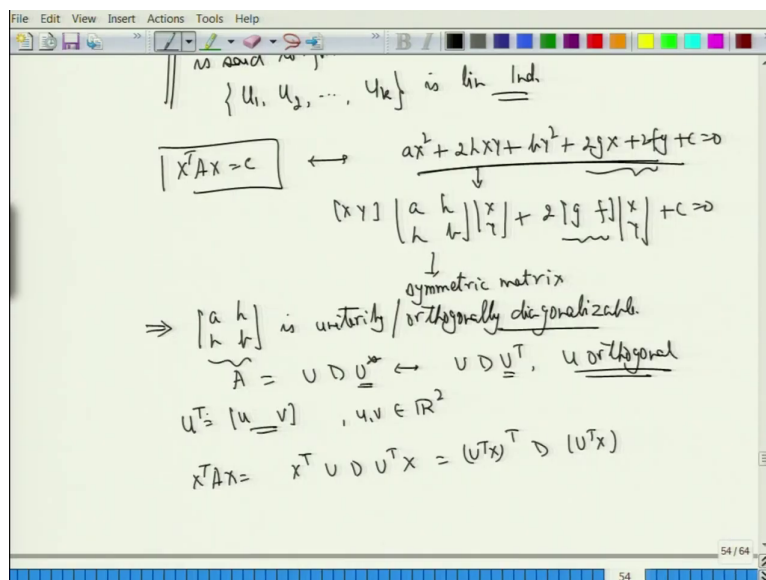 File Edit View Insert Actions Tools Help
B I
is said to
{u₁, u₂, ..., u_k} is lin Ind.
xᵀAx = c ↔ ax² + 2hxy + by² + 2gx + 2fy + c = 0
↓
[x y] [a h; h b] [x; y] + 2[g f] [x; y] + c = 0
↓
symmetric matrix
⇒ [a h; h b] is uniterily / orthogonally diagonalizable.
A = U D U* ↔ U D Uᵀ, U orthogonal
Uᵀ = [u v], u, v ∈ ℝ²
xᵀAx = xᵀ U D Uᵀ x = (Uᵀx)ᵀ D (Uᵀx)
54 / 64
54